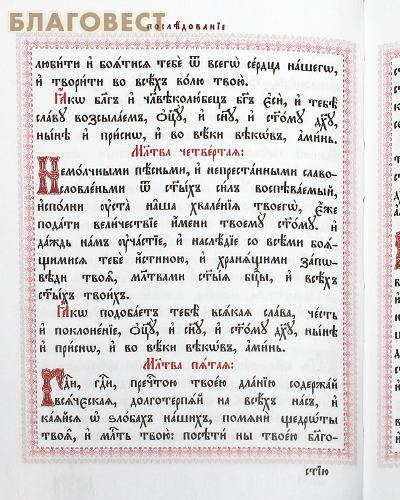 БЛАГОВЕСТ
послѣ́дованїе
люби́ти и҆ боѧ́тисѧ тебє̀ ѿ всегѡ̀ се́рдца на́шегѡ,
и҆ твори́ти во всѣ́хъ во́лю твою̀.
Ꙗ҆́кѡ бл҃гъ и҆ чл҃вѣколю́бецъ бг҃ъ є҆сѝ, и҆ тебѣ̀
сла́ву возсыла́емъ, ѻ҆ц҃ꙋ̀, и҆ сн҃ꙋ, и҆ ст҃о́мꙋ дх҃ꙋ,
ны́нѣ и҆ при́снѡ, и҆ во вѣ́ки вѣкѡ́въ, а҆ми́нь.
Мл҃тва четве́ртаѧ:
Немо́лчными пѣ́сньми, и҆ непреста́нными славо-
словле́ньми ѿ ст҃ы́хъ си́лъ воспѣва́емый,
и҆спо́лни ᲂу҆ста̀ на̑ша хвале́нїѧ твоегѡ̀, є҆́же
пода́ти вели́чествїе и҆́мени твоемꙋ̀ ст҃о́мꙋ. и҆
да́ждь на́мъ ᲂу҆ча́стїе, и҆ наслѣ́дїе со всѣ́ми боѧ́-
щимисѧ тебє̀ и҆́стиною, и҆ хранѧ́щими за́пѡ-
вѣди твоѧ̑, мл҃твами ст҃ы́ѧ бц҃ы, и҆ всѣ́хъ
ст҃ы́хъ твои́хъ.
Ꙗ҆́кѡ подоба́етъ тебѣ̀ всѧ́каѧ сла́ва, че́сть
и҆ поклоне́нїе, ѻ҆ц҃ꙋ̀, и҆ сн҃ꙋ, и҆ ст҃о́мꙋ дх҃ꙋ, ны́нѣ
и҆ при́снѡ, и҆ во вѣ́ки вѣкѡ́въ, а҆ми́нь.
Мл҃тва пѧ́таѧ:
Гд҇и, гд҇и, преч҇тою твое́ю дла́нїю содержа́й
всѧ́чєскаѧ, долготерпѧ́й на всѣ́хъ на́съ, и҆
ка́ѧйсѧ ѡ҆ ѕло́бахъ на́шихъ, помѧнѝ щедрѡ́ты
твоѧ̑, и҆ мл҇ть твою̀: посѣтѝ ны̀ твое́ю бл҃го-
стїю